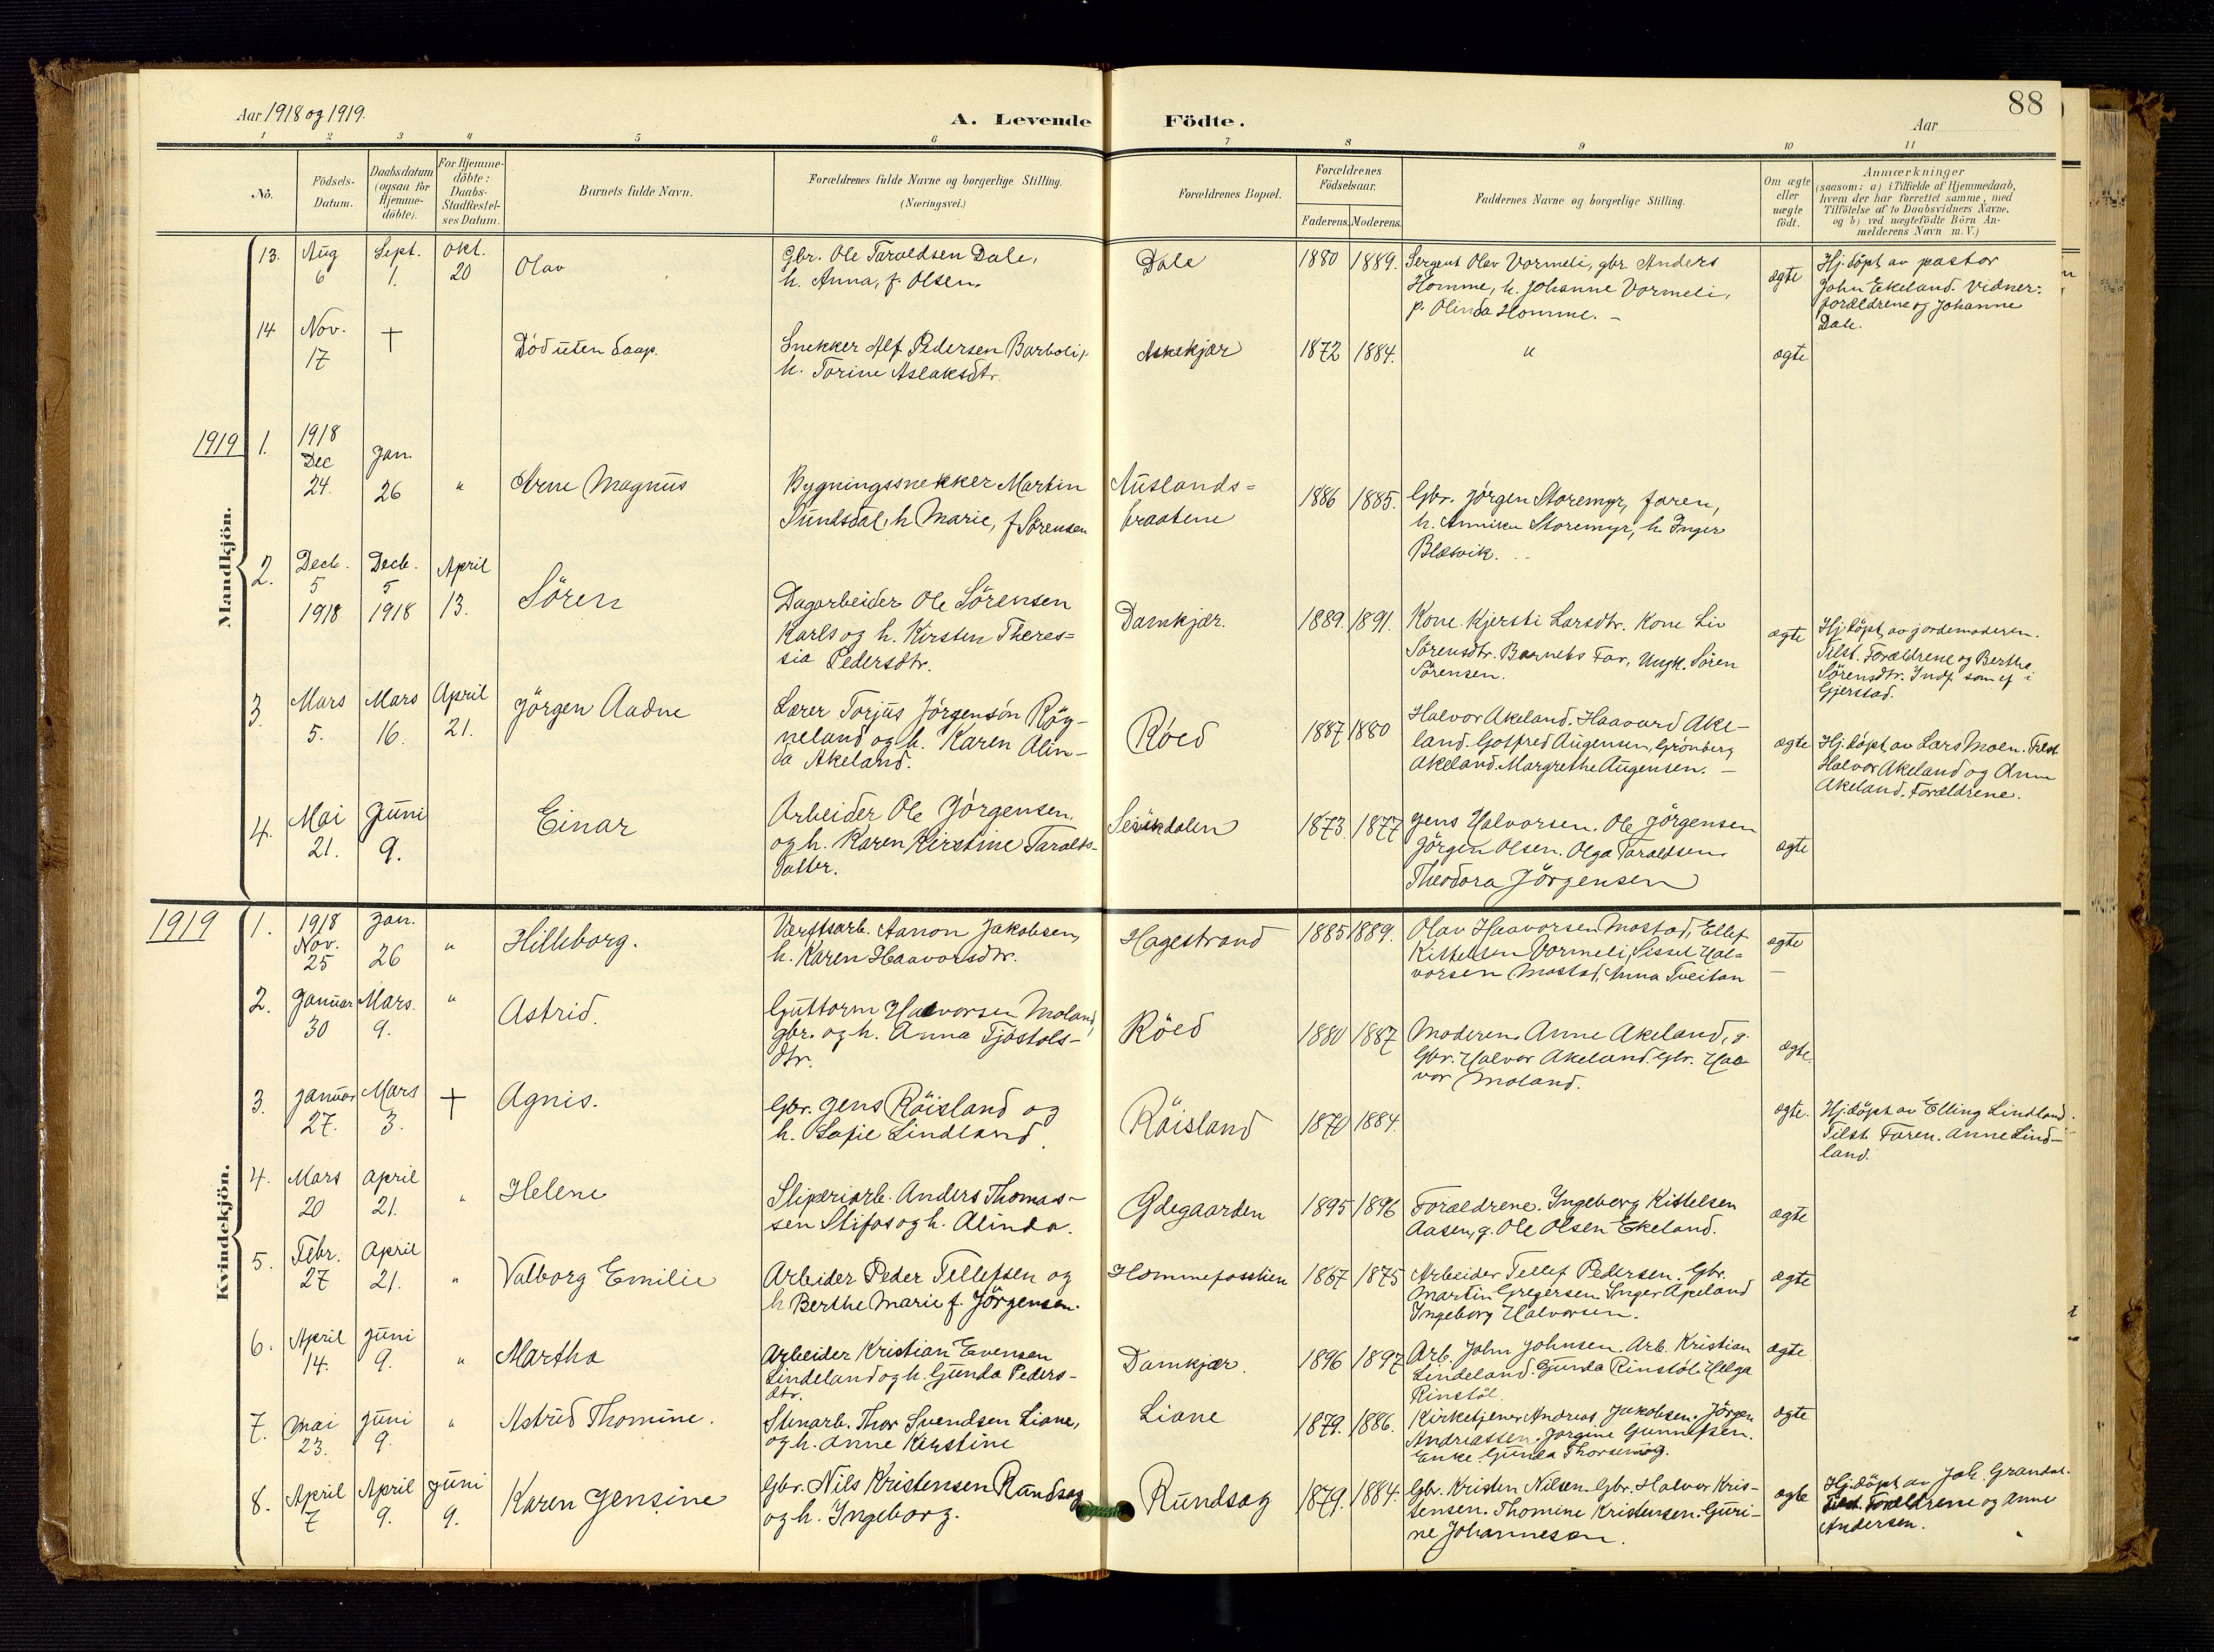 88
Aar 1918 og 1919.
A. Levende Födte.
Aar
1 2 3 4 5 6 7 8 9 10 11
No.
Födsels-
Datum.
Daabsdatum
(ogsaa for
Hjemme-
döbte).
For Hjemme-
döbte:
Daabs-
Stadfæstel-
ses Datum.
Barnets fulde Navn.
Forældrenes fulde Navne og borgerlige Stilling.
(Næringsvei.)
Forældrenes Bopæl.
Forældrenes
Födselsaar.
Faderens. Moderens.
Faddernes Navne og borgerlige Stilling.
Om ægte
eller
uægte
födt.
Anmærkninger
(saasom: a) i Tilfælde af Hjemmedaab,
hvem der har forrettet samme, med
Tilföielse af to Daabsvidners Navne,
og b) ved uegtefödte Börn An-
melderens Navn m. V.)
Mandkjön.
13.
Aug
6
Sept.
1.
Okt.
20
Olav
Gbr. Ole Taraldsen Dale,
h. Anna, f. Olsen.
Dale
1880 1889.
Sergent Olav Vormeli, gbr. Anders
Homme, h. Johanne Vormeli,
p. Olinda Homme. –
ægte
Hj.döpt av pastor
John Ekeland. Vidner:
forældrene og Johanne
Dale.
14
Nov.
17
†
Död uten daap.
Snekker Alf Pedersen Barboli,
h. Torine Aslaksdtr.
Askekjær
1872 1884.
"
ægte
1919
1.
1918
Dec
24.
Jan.
26
"
Arne Magnus
Bygningssnekker Martin
Sundsdal, h Marie, f Sörensen
Auslands=
braatene
1886 1885.
Gbr. Jörgen Storemyr, faren,
h. Anniken Storemyr, h. Inger
Blæsvik.
2.
Decb.
5
1918
Decb.
5
1918
April
13.
Sören
Dagarbeider Ole Sörensen
Karls og h. Kirsten Theres=
sia Pedersdtr.
Damkjær.
1889. 1891.
Kone Kjersti Larsdtr. Kone Liv
Sörensdtr. Barnets Far, Ungk. Sören
Sörensen.
ægte
Hj.döpt av jordemoderen.
Tilst. Forældrene og Berthe
Sörensdtr. Indf. som ef i
Gjerstad.
3.
Mars
5.
Mars
16.
April
21.
Jörgen Aadne
Lærer Torjus Jörgensön Röy-
neland og h. Karen Alin-
da Akeland.
Röed
1887 1880
Halvor Akeland. Haavard Ake-
land. Gotfred Augensen, Grönberg
Akeland. Margrethe Augensen. –
ægte
Hj.döpt av Lars Moen. Tilst.
Halvor Akeland og Anne
Akeland. Forældrene.
4.
Mai
21.
Juni
9.
Einar
Arbeider Ole Jörgensen
og h. Karen Kirstine Taralds-
datter.
1873. 1877
Jens Halvorsen. Ole Jörgensen
Jörgen Olsen. Olga Taraldsen
Theodora Jörgensen
ægte
1919
Kvindekjön.
1.
1918
Nov.
25
Jan.
26
"
Hilleborg.
Værftsarb. Aanon Jakobsen,
h. Karen Haavorsdtr.
Hagestrand
1885 1889.
Olav Haavorsen Mostad, Ellef
Kittelsen Vormeli, Sissel Hal=
vorsen Mostad, Anna Tveitan
ægte
–
2.
Januar
30
Mars.
9.
"
Astrid.
Guttorm Halvorsen Moland,
gbr. og h. Anna Tjöstols-
dtr.
Röed
1880 1887
Moderen. Anne Akeland, g.
Gbr. Halvor Akeland. Gbr. Haa
vor Moland.
ægte.
3.
Januar
27.
Mars
3.
†
Agnis.
Gbr. Jens Röisland og
h. Sofie Lindland.
Röisland
1870 1884.
ægte.
Hj.döpt av Elling Lindland.
Tilst. Faren. Anne Lind-
land.
4.
Mars
20
April
21.
"
Helene
Sliperiarb. Anders Thomas-
sen Slifos og h. Alinda.
Ödegaarden
1895 1896
Forældrene. Ingeborg Kittelsen
Aasen, g. Ole Olsen Ekeland.
ægte
5.
Febr.
27
April
21.
"
Valborg Emilie
Arbeider Peder Tellefsen og
h. Berthe Marie f. Jörgensen.
Hommefosslien
1867 1875
Arbeider Tellef Pedersen. Gbr.
Martin Gregersen. Inger Apeland
Ingeborg Halvorsen.
ægte
6.
April
14.
Juni
9.
"
Martha
Arbeider Kristian Evensen
Lindeland og h. Gunda Peders-
dtr.
Damkjær.
1896 1897
Arb. John Johnsen. Arb. Kristian
Lindeland. Gunda Rinstöl. Helga
Rinstöl.
ægte
7.
Mai
23.
Juni
9.
"
Astrid Thomine.
Stenarb. Thor Svendsen Liane,
og h. Anne Kirstine
Liane
1879. 1886.
Kirketjener Andreas Jakobsen. Jörgen
Andreassen. Jorgine Gunnufsen.
Enke Gunda
ægte
8.
April
7
April
9.
Juni
9.
Karen Jensine
Gbr. Nils Kristensen Rundsag
og h. Ingeborg.
Rundsag
1879. 1884.
Gbr. Kristen Nilsen. Gbr. Halvor Kris-
tensen. Thomine Kristensen. Guri-
ne Johannesen.
ægte
Hj.döpt av Joh. Grandal.
Tilst. Forældrene og Anne
Andersen.